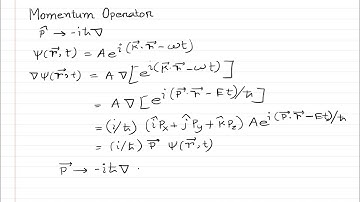 Momentum Operator
p̂ → -iħ∇
ψ(r⃗,t) = A e^{i(k⃗·r⃗-ωt)}
∇ψ(r⃗,t) = A ∇[e^{i(k⃗·r⃗-ωt)}]
= A ∇[e^{i(p⃗·r⃗-Et)/ħ}]
= (i/ħ) (îPx+ĵPy+k̂Pz) A e^{i(p⃗·r⃗-Et)/ħ}
= (i/ħ) p⃗ ψ(r⃗,t)
p⃗ → -iħ∇ .